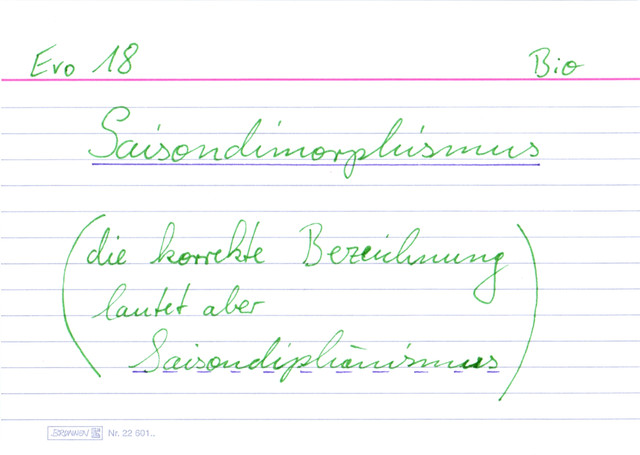 Evo 18 Bio
Saisondimorphismus
(die korrekte Bezeichnung
lautet aber
Saisondiphänismus)
BRUNNEN Nr. 22 601..